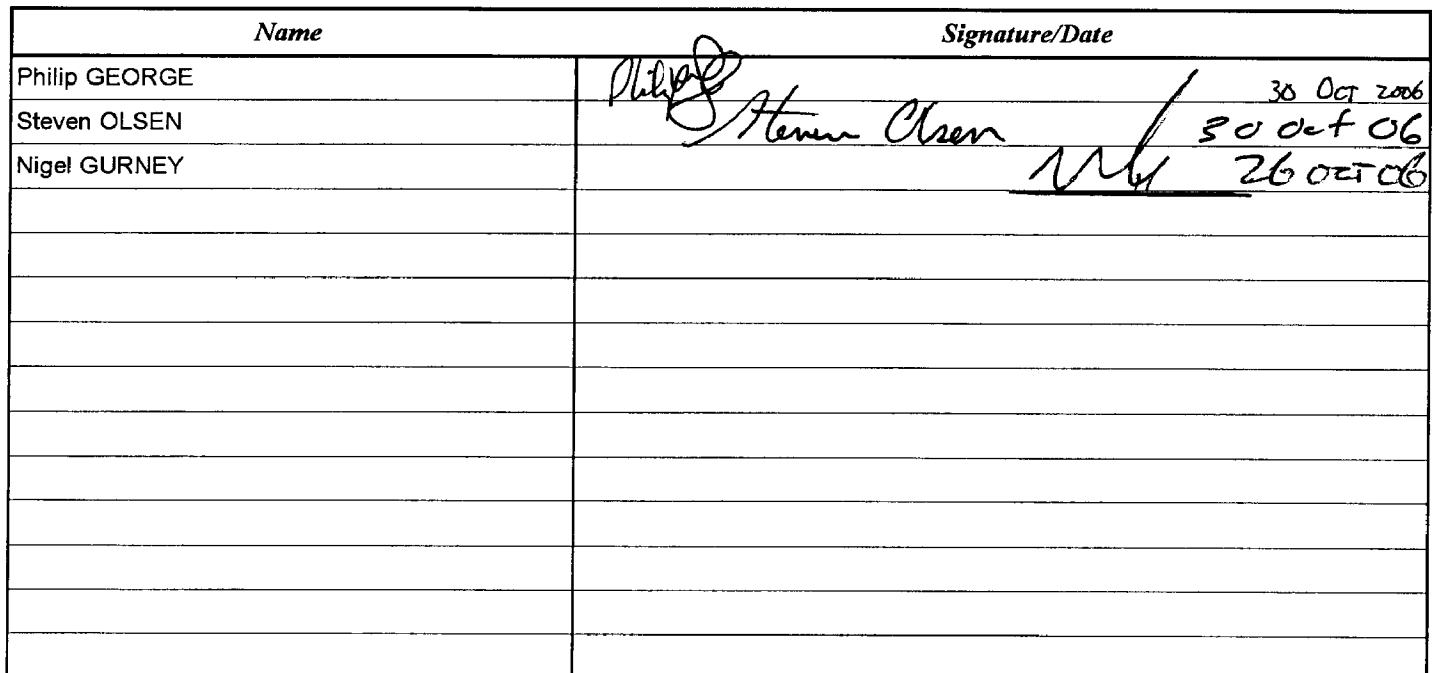 Name Signature/Date
Philip GEORGE Philip 30 Oct 2006
Steven OLSEN Steven Olsen 30 Oct 06
Nigel GURNEY 26 OCT 06